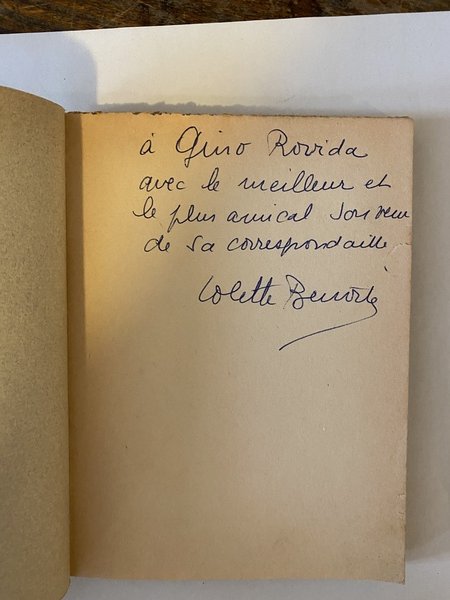 à Gino Rovida
avec le meilleur et
le plus amical souvenir
de sa correspondaille
Colette Benoîte